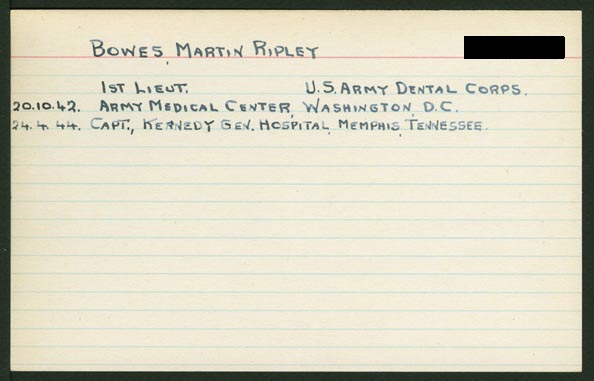 BOWES, MARTIN RIPLEY
1ST LIEUT. U.S. ARMY DENTAL CORPS.
20.10.42. ARMY MEDICAL CENTER, WASHINGTON, D.C.
24.4.44. CAPT., KENNEDY GEN. HOSPITAL, MEMPHIS, TENNESSEE.